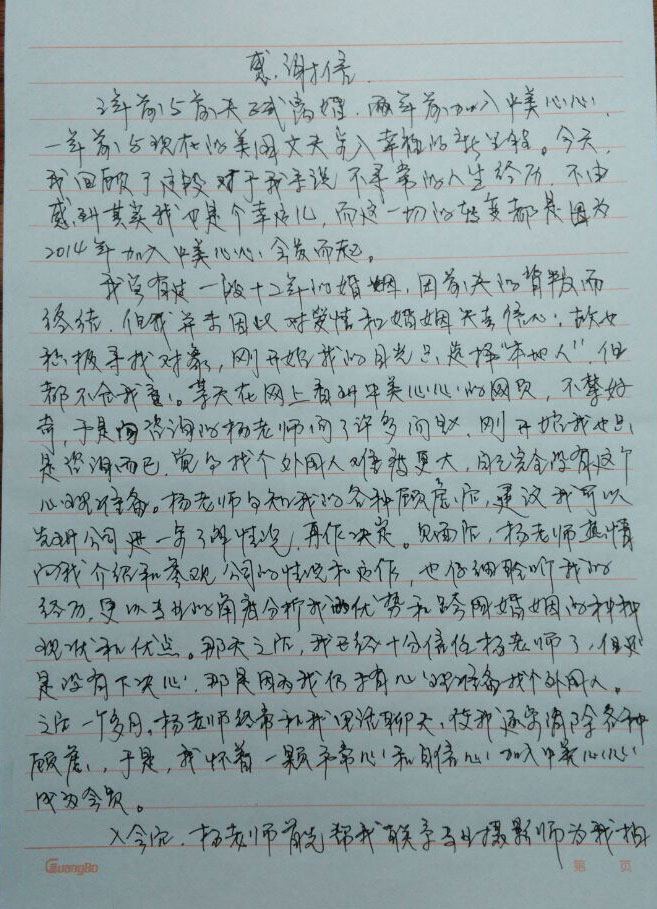 感谢信
三年前与前夫正式离婚，两年前加入中美心心，
一年前与现在的美国丈夫步入幸福的新里程。今天，
我回顾了这段对于我来说不寻常的人生经历，不由
感到其实我也是个幸运儿，而这一切的转变都是因为
2014年加入中美心心会员而起。
我曾有过一段十二年的婚姻，因前夫的背叛而
终结，但我并未因此对爱情和婚姻失去信心，故也
积极寻找对象，刚开始我的目光只选择"本地人"，但
都不合我意。某天在网上看到中美心心的网页，不禁好
奇，于是向咨询的杨老师问了许多问题，刚开始我也只
是咨询而已，觉得找个外国人难度更大，自己完全没有这个
心理准备。杨老师得知我的各种顾虑后，建议我可以
先到公司进一步了解情况，再作决定。见面后，杨老师热情
向我介绍和参观公司的情况和运作，也仔细聆听我的
经历，更以专业的角度分析我的优势和跨国婚姻的种种
现状和优点。那天之后，我已经十分信任杨老师了，但还
是没有下决心，那是因为我仍未有心理准备找个外国人。
之后一个多月，杨老师经常和我电话聊天，使我逐步消除各种
顾虑，于是，我怀着一颗平常心和自信心加入中美心心
成为会员。
入会后，杨老师首先帮我联系专业摄影师为我拍
GuangBo
第 页